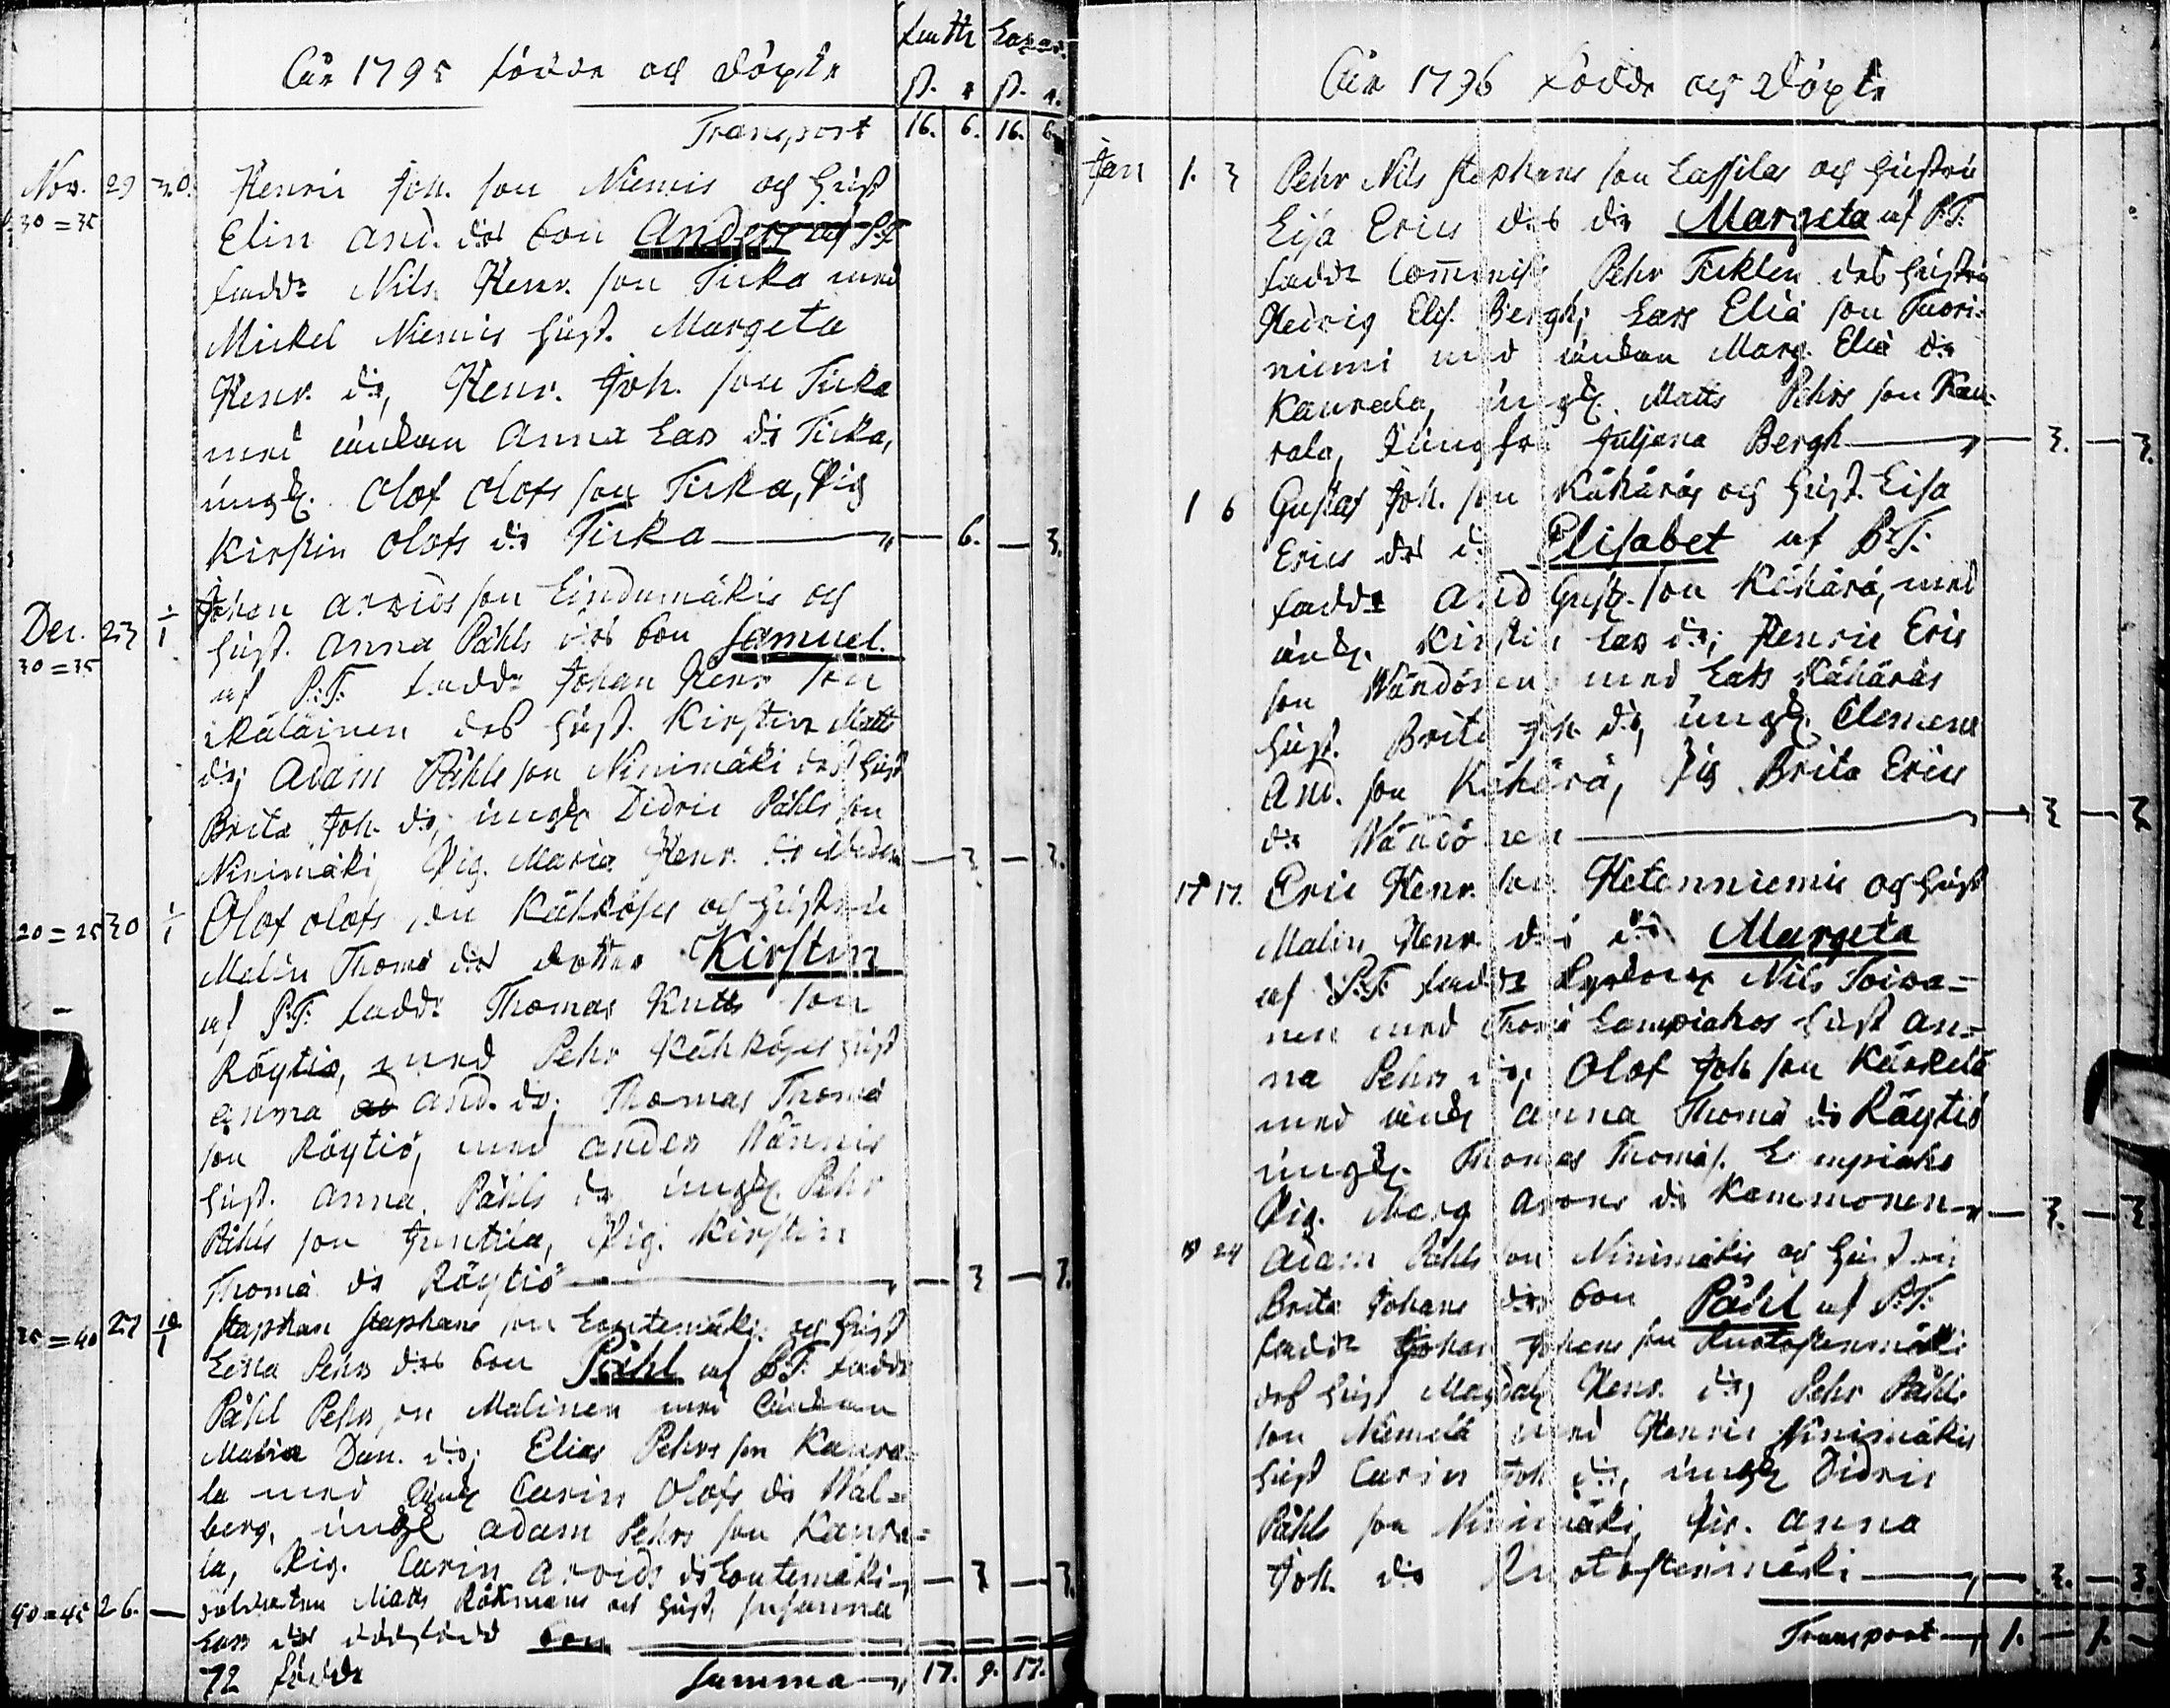 År 1795 födde och döpte
Transport 16. 6. 16. 6
Nov. 29 30. Henric Joh. son Niemis och hust
30=35 Elin And. dr son Anders af P.T.
fadd: Nils Henr. son Tirka med
Mickel Niemis hust. Margeta
Henr. dr, Henr. Joh. son Tirka
med änkan Anna Lars dr Tirka,
ungk. Olof Olofs son Tirka, Pig
Kirstin Olofs dr Tirka — 6. — 3.
Johan Arvids son Lindumäkis och
Dec. 23 1/1 hust. Anna Påhls dr son Samuel.
30=35 af P:T: fadd: Johan Henr son
ikäläinen des hust. Kirstin Matts
dr; Adam Påhls son Ninimäki des hust
Brita Joh. dr, ungk Didric Påhls son
Ninimäki, Pig. Maria Henr. dr — 3 — 3.
20=25 30 1/1 Olof Olofs son Kähkösis och hustru
Malin Thome dr dotter Kirstin
af P.T: fadd: Thomas Knuts son
Röytiö, med Pehr Kähkösis hust
Anna And. dr; Thomas Thome
son Röytiö, med Anders Wännis
hust. Anna Påhls dr ungk. Pehr
Påhls son Juntila, Pig. Kirstin
Thome dr Röytiö — 3 — 3.
35=40 27 10/1 Staphan Staphans son Loutemäki och hust
Lisa Pehrs dr son Påhl af P.T. fadd:
Påhl Pehrs son Malinen med änkan
Maria Dan. dr; Elias Pehrs son Kaura=
la med änk Carin Olofs dr Wal=
berg, ungk Adam Pehrs son Kaura=
la, Pig. Carin Arvids dr Loutemäki — 3 — 3.
40=45 26. — Soldaten Matts Rökmans och hust, Susanna
Lars dr dödfödd son
72 födde Summa 17. 9. 17.
År 1796 födde och döpte
Jan 1. 3 Pehr Nils Stephans son Lassilas och hustru
Lisa Erics dr dr Margeta af P.T.
fadd: Pehr Ticklen des hustru
Hedvig Elis. Bergh; Lars Eliæ son Tuori=
niemi med änkan Marg. Eliæ dr
Kaurala, ungk. Matts Pehrs son Kau=
rala, Jungfru Juljana Bergh — 3. — 3.
1 6 Gustaf Joh. son Kähäräs och hust. Lisa
Erics dr dr Elisabet af P.T:
fadd: And Gust. son Kähärä, med
änk. Kirstin Lars dr; Henric Eric
son Wändönen med Lars Kähäräs
hust. Brita Joh. dr, ungk. Clemens
And. son Kähärä, Pig Brita Erics
dr Wändönen — 3 — 3
17 17. Eric Henr. son Hetenniemis och hust
Malin Henr. dr dr Margeta
af P.T. fadd: Nils Toiwa=
nen med Thome Lampiahos hust An=
na Pehrs dr; Olof Joh son Kärkelä
med änk Anna Thome dr Röytiö
ungk. Thomas Thome s. Lampiaho
Pig. Marg Arons dr Kemmonen — 3. — 3.
19 24 Adam Påhls son Ninimäkis och hustru
Brita Johans dr son Påhl af P.T.
fadd: Johan Johans son Ruotostenmäki
des hust Magdal Henr. dr; Pehr Påhls
son Niemelä med Henric Ninimäkis
hust Carin Joh dr, ungk Didric
Påhls son Ninimäki, Pir. Anna
Joh. dr Ruotostenmäki — 3. — 3.
Transport 1. — 1. —